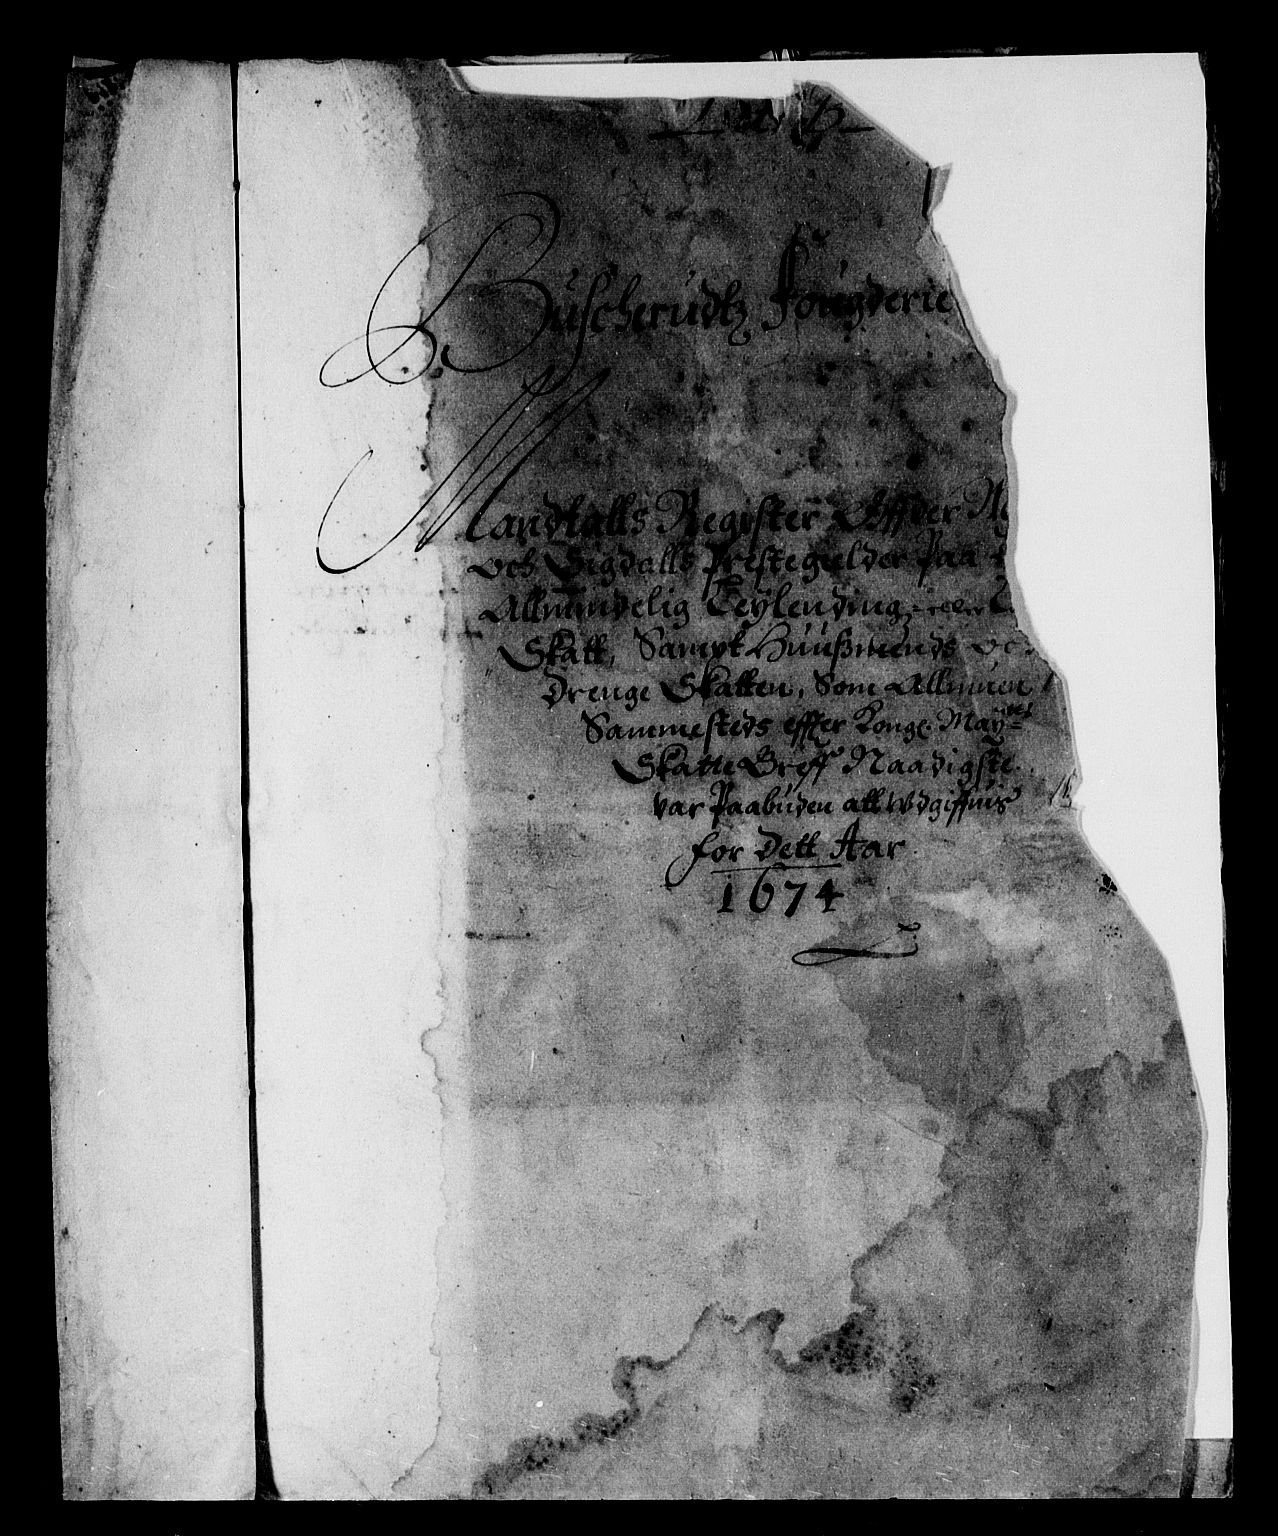 Buscherudtz Fougderie
Mandtalls Register Offuer
och Sigdalls Prestegielder Paa
Allmindelig Leylending
Skatt, Sampt Huußmends
drenge Skatten, Som Allmuen
Sammesteds effter Kongl. Mayts
Skatte Breff Naadigste
var Paabuden att udgiffuis
for dett Aar
1674